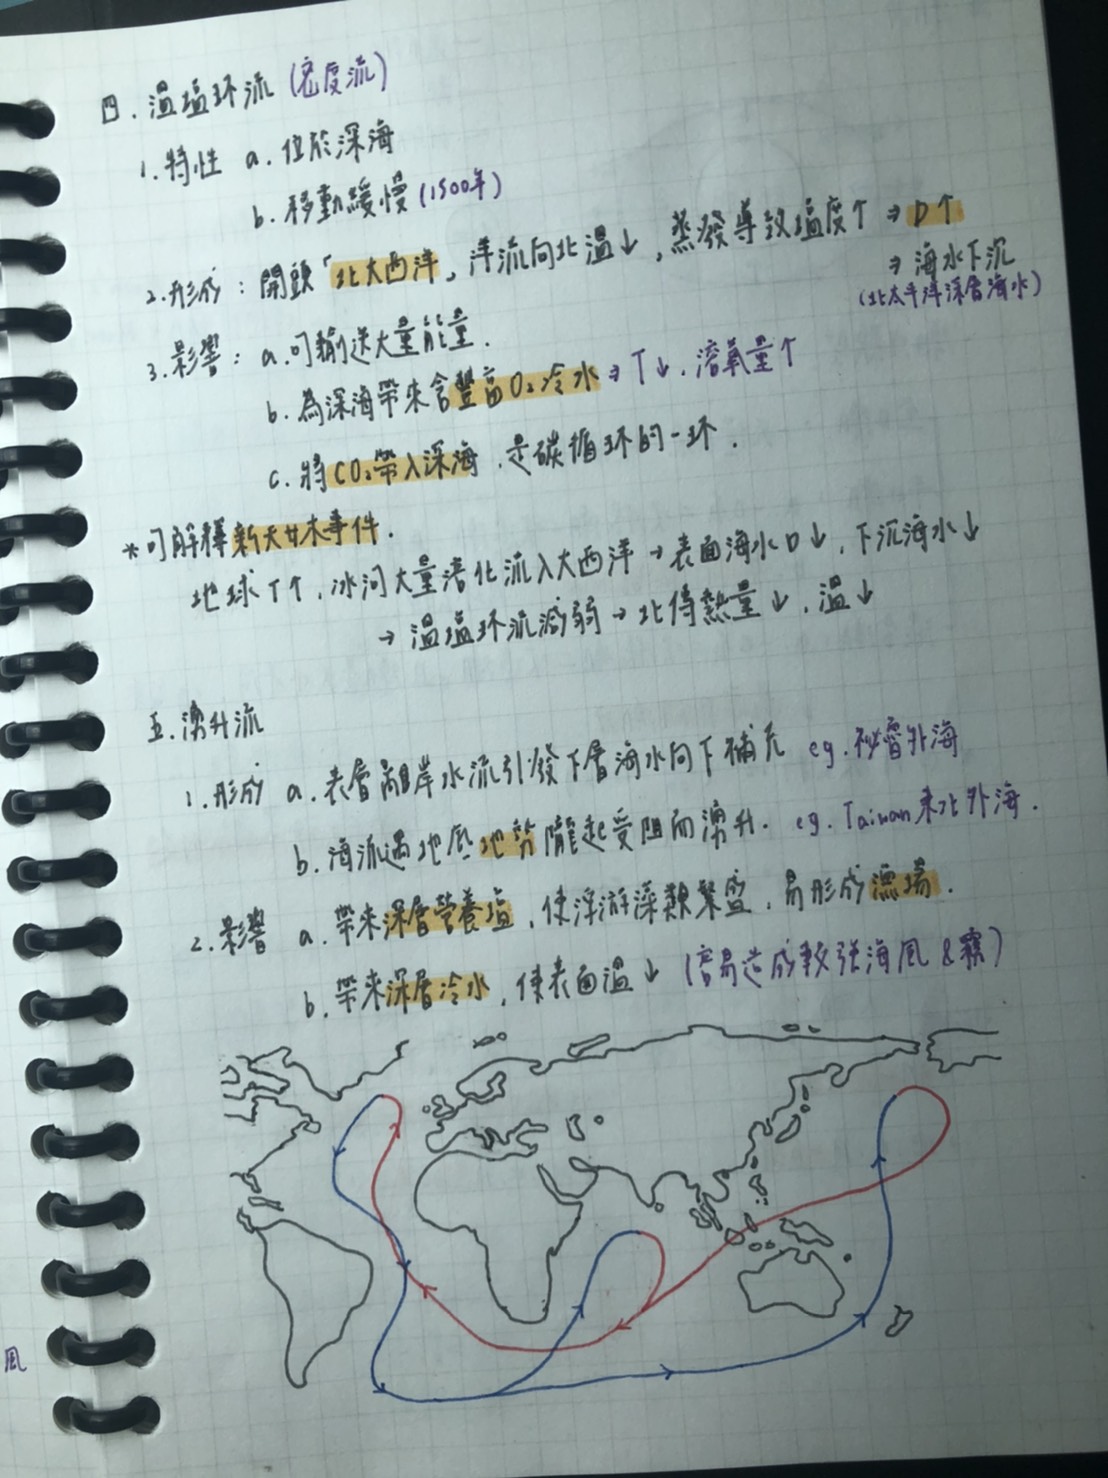 四.溫塩环流 (密度流)
1.特性 a.位於深海
b.移動緩慢 (1500年)
2.形成:開頭「北大西洋」洋流向北溫↓,蒸發導致塩度↑ ⇒ D↑
⇒ 海水下沉
(北太平洋深層海水)
3.影響: a.可輸送大量能量.
b.為深海帶來含豐富O₂冷水 ⇒ T↓.溶氧量↑
c.將CO₂帶入深海,是碳循环的一环.
*可解釋新天女木事件.
地球T↑,冰河大量溶化流入大西洋→表面海水D↓,下沉海水↓
→溫塩环流減弱→北傳熱量↓,溫↓
五.湧升流
1.形成 a.表層離岸水流引發下層海水向下補充 eg.祕魯外海
b.海流遇地底地勢隴起受阻而湧升. eg.Taiwan東北外海.
2.影響 a.帶來深層營養塩,使浮游藻類繁盛,易形成漁場.
b.帶來深層冷水,使表面溫↓ (容易造成較強海風&霧)
風